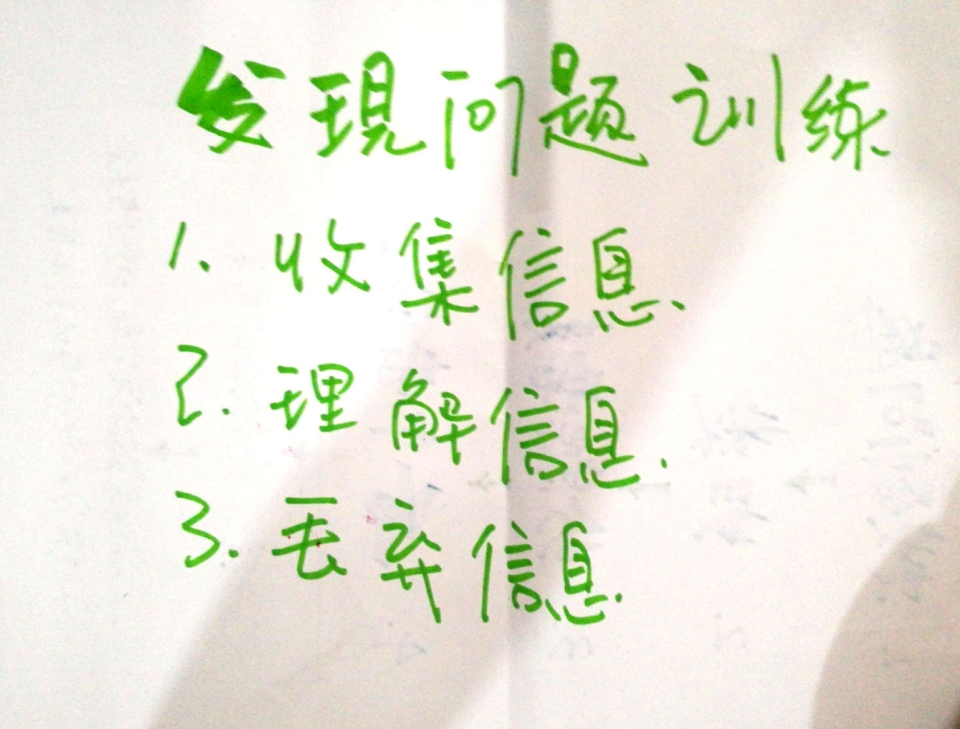 发現问题训练
1. 收集信息.
2. 理解信息.
3. 丢弃信息.